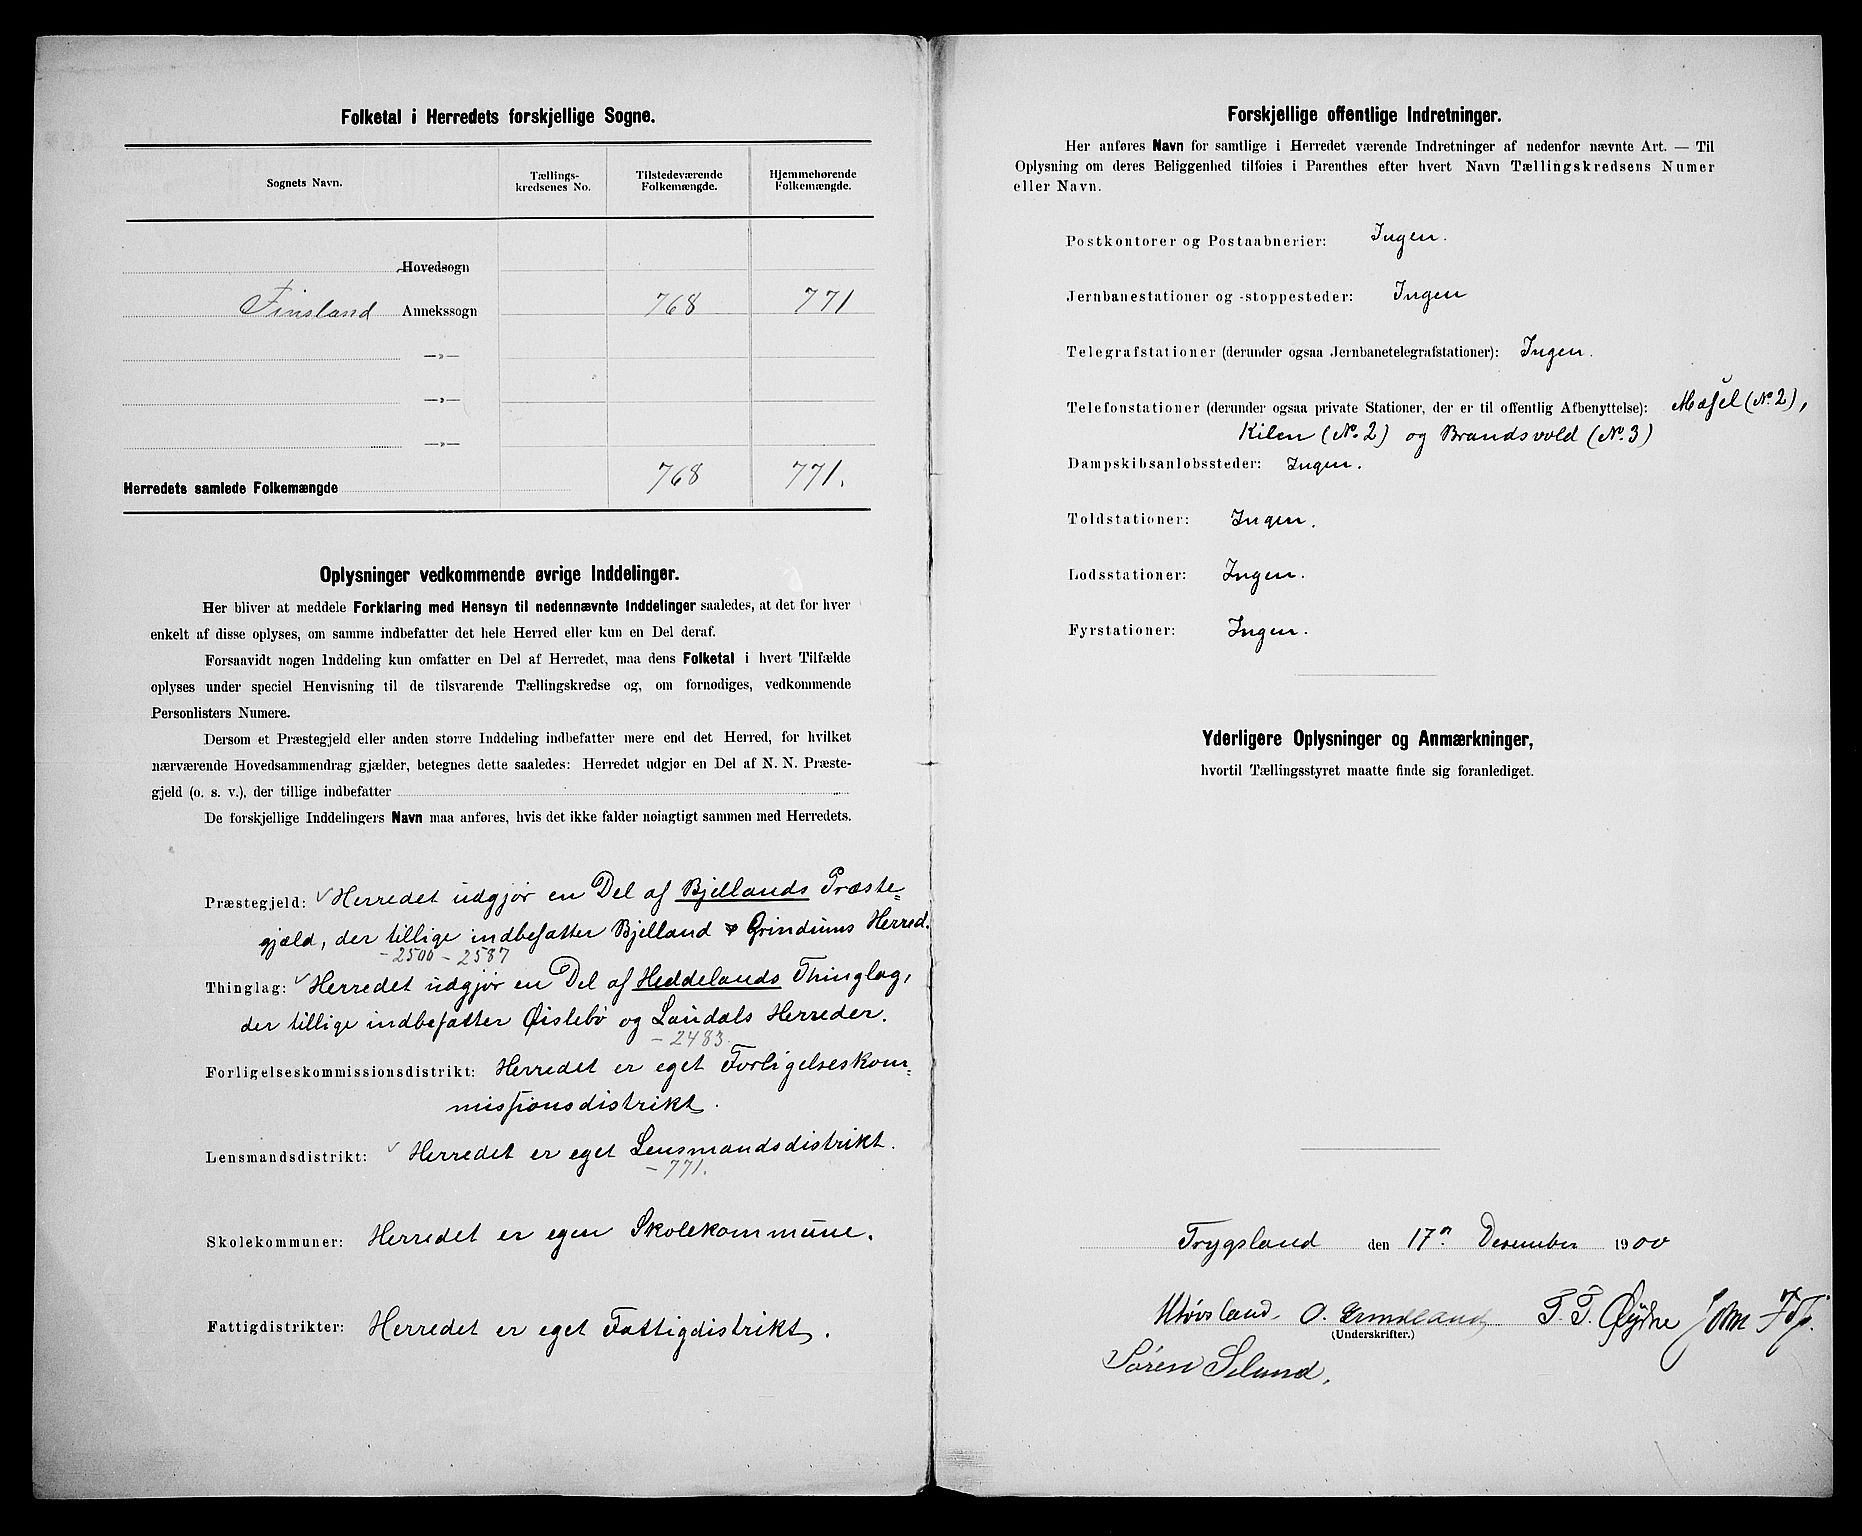 Folketal i Herredets forskjellige Sogne.
Sognets Navn.
Tællings-
kredsenes No.
Tilstedeværende
Folkemængde.
Hjemmehørende
Folkemængde.
Hovedsogn
Finsland Annekssogn 768 771
—»—
—»—
—»—
Herredets samlede Folkemængde 768 771.
Oplysninger vedkommende øvrige Inddelinger.
Her bliver at meddele Forklaring med Hensyn til nedennævnte Inddelinger saaledes, at det for hver
enkelt af disse oplyses, om samme indbefatter det hele Herred eller kun en Del deraf.
Forsaavidt nogen Inddeling kun omfatter en Del af Herredet, maa dens Folketal i hvert Tilfælde
oplyses under speciel Henvisning til de tilsvarende Tællingskredse og, om fornødiges, vedkommende
Personlisters Numere.
Dersom et Præstegjeld eller anden større Inddeling indbefatter mere end det Herred, for hvilket
nærværende Hovedsammendrag gjælder, betegnes dette saaledes: Herredet udgjør en Del af N. N. Præste-
gjeld (o. s. v.), der tillige indbefatter
De forskjellige Inddelingers Navn maa anføres, hvis det ikke falder nøiagtigt sammen med Herredets.
Præstegjeld: Herredet udgjør en Del af Bjellands Præste=
gjæld, der tillige indbefatter Bjelland & Grindums Herred.
- 2500 - 2587
Thinglag: Herredet udgjør en Del af Heddelands Thinglag,
der tillige indbefatter Øislebø og Laudals Herreder.
- 2483.
Forligelseskommissionsdistrikt: Herredet er eget Forligelseskom=
missionsdistrikt.
Lensmandsdistrikt: Herredet er eget Lensmandsdistrikt.
- 771.
Skolekommuner: Herredet er egen Skolekommune.
Fattigdistrikter: Herredet er eget Fattigdistrikt.
Forskjellige offentlige Indretninger.
Her anføres Navn for samtlige i Herredet værende Indretninger af nedenfor nævnte Art. — Til
Oplysning om deres Beliggenhed tilføies i Parenthes efter hvert Navn Tællingskredsens Numer
eller Navn.
Postkontorer og Postaabnerier: Ingen.
Jernbanestationer og -stoppesteder: Ingen
Telegrafstationer (derunder ogsaa Jernbanetelegrafstationer): Ingen.
Telefonstationer (derunder ogsaa private Stationer, der er til offentlig Afbenyttelse): (No. 2),
Kilen (No. 2) og Brandsvold (No. 3)
Dampskibsanløbssteder: Ingen.
Toldstationer: Ingen.
Lodsstationer: Ingen.
Fyrstationer: Ingen.
Yderligere Oplysninger og Anmærkninger,
hvortil Tællingsstyret maatte finde sig foranlediget.
Trygsland den 17n Desember 1900
T. T. Øydne
(Underskrifter.)
Søren Selund.